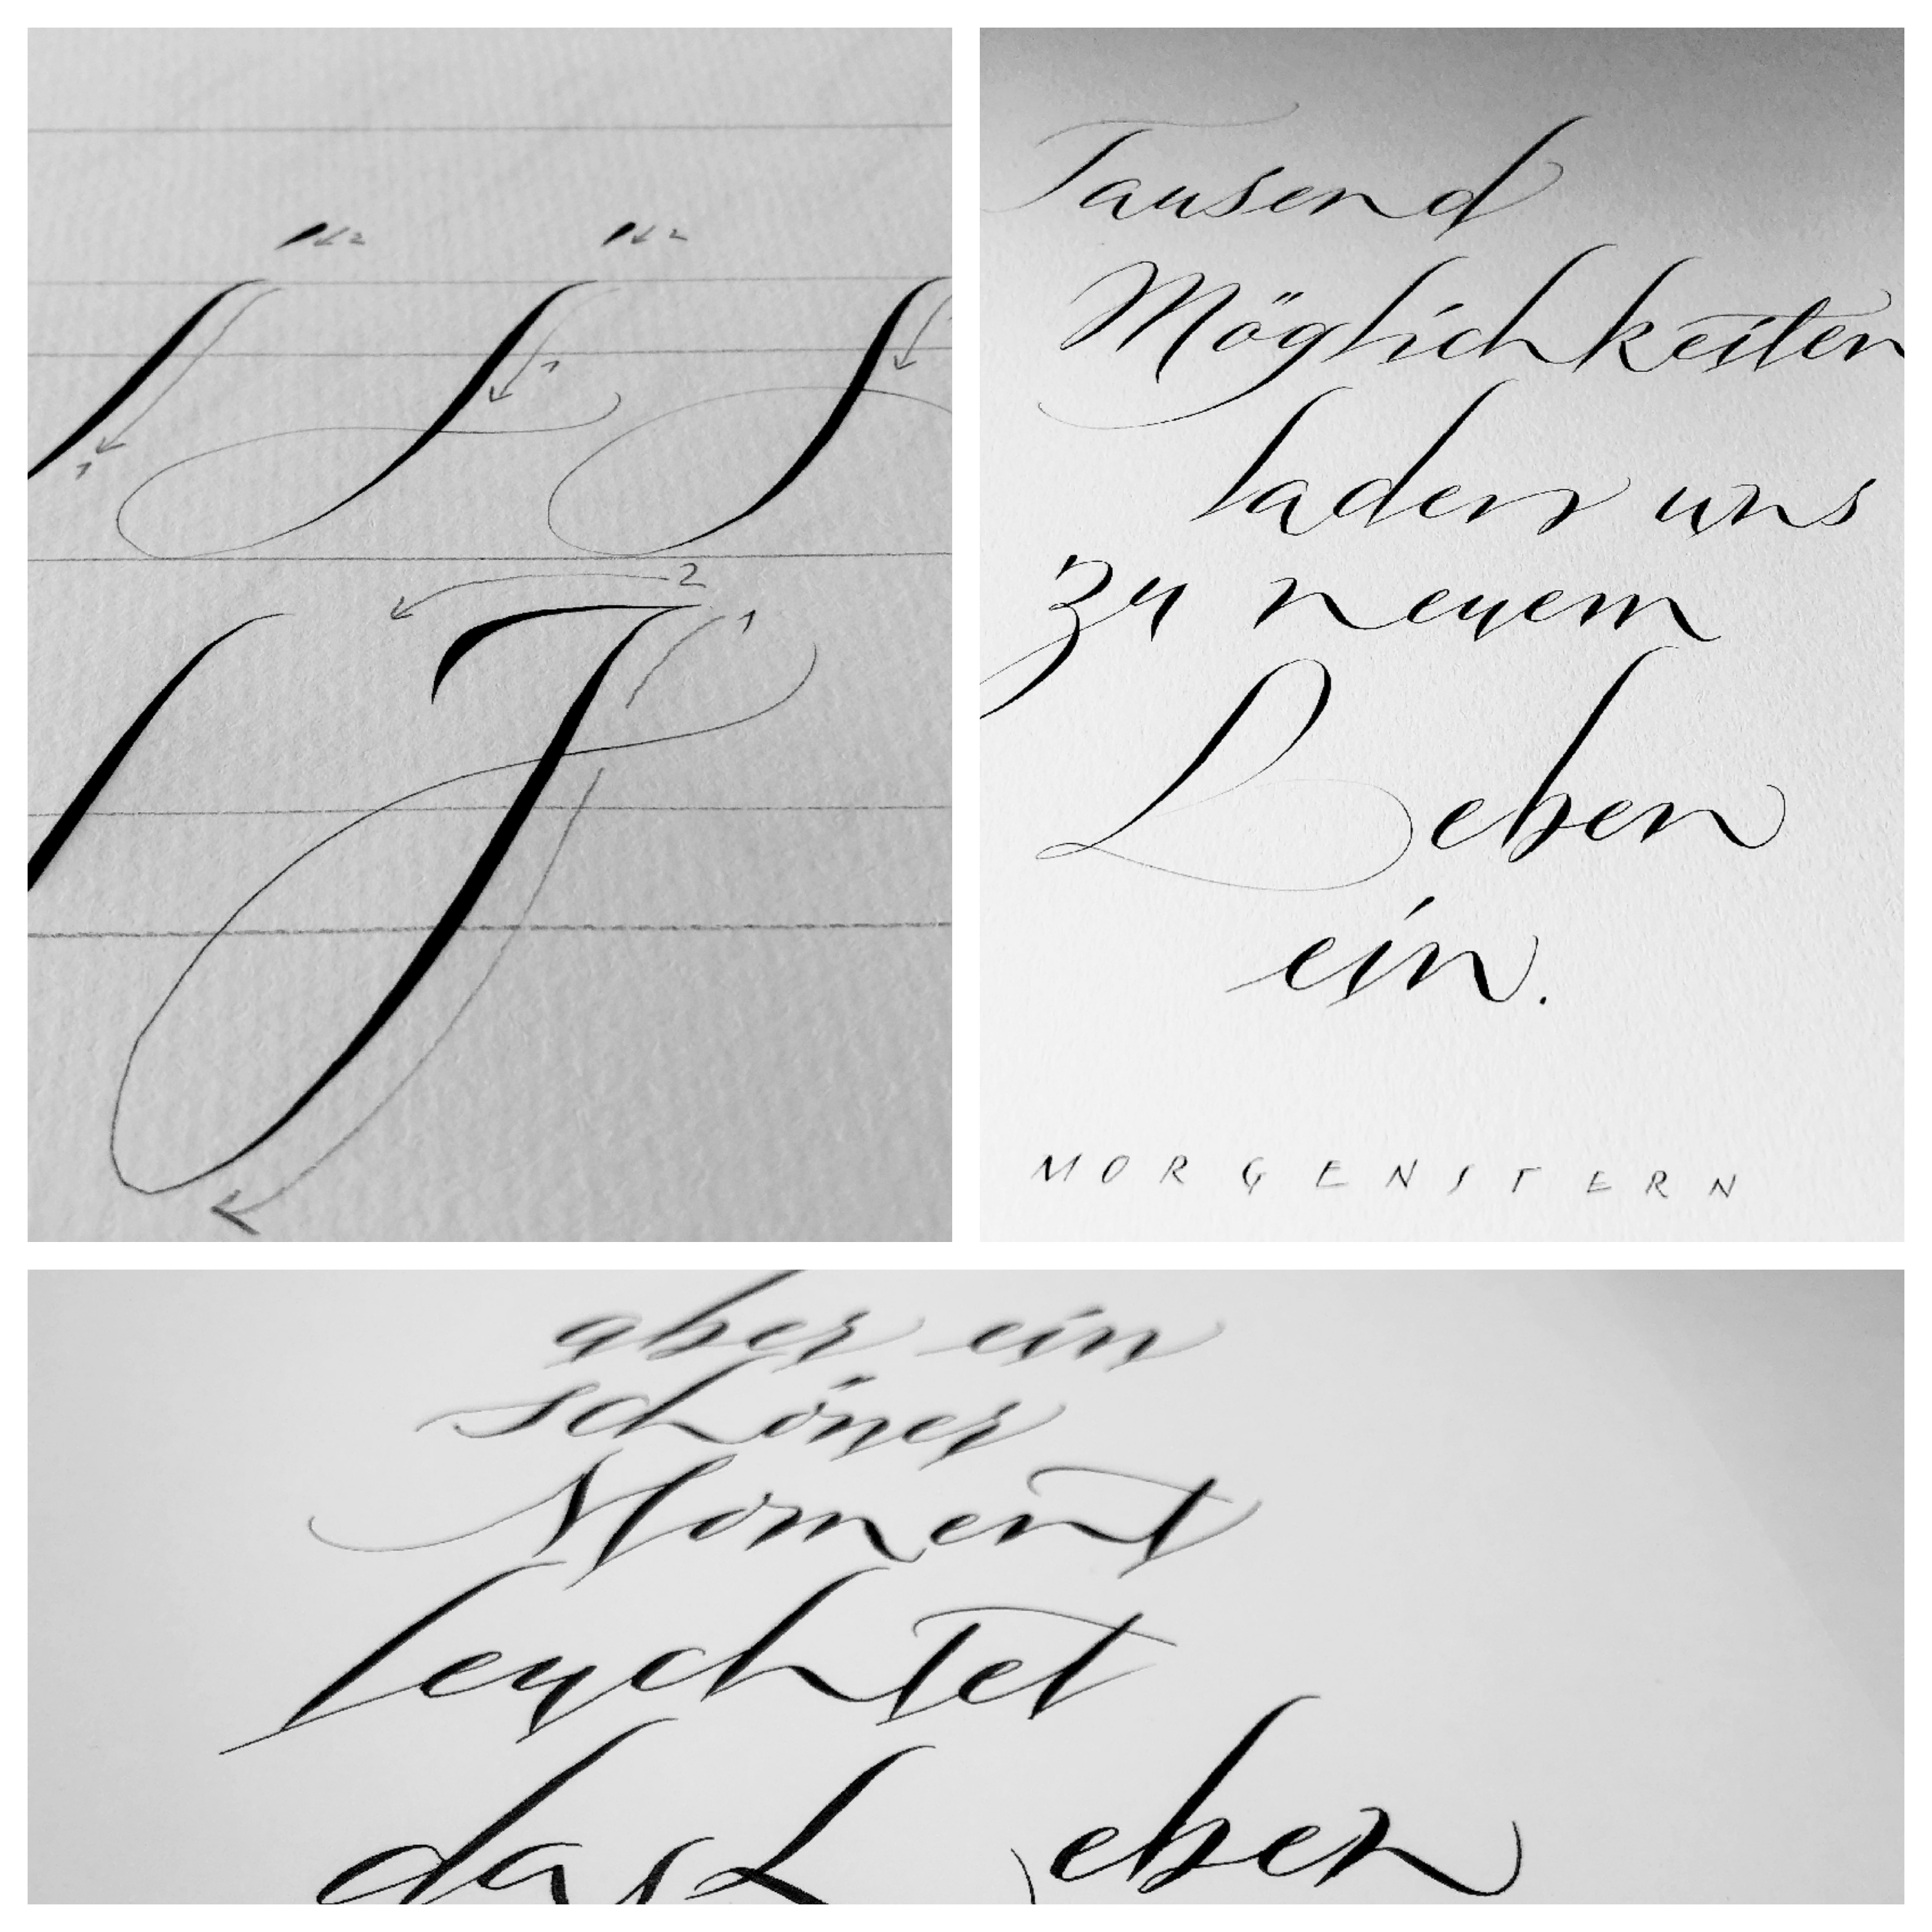 2 2
1 1
2
1
J
Tausend
Möglichkeiten
laden uns
zu neuem
Leben
ein.
MORGENSTERN
aber ein
schöner
Moment
leuchtet
das Leben